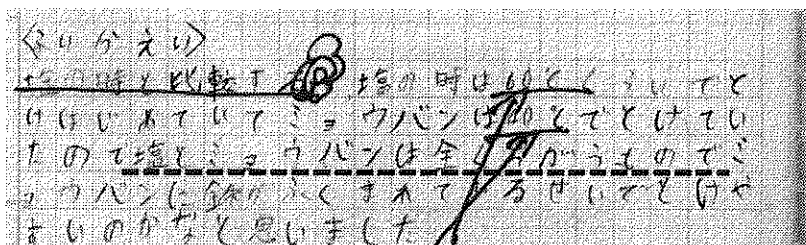 〈ふりかえり〉
塩の時と比較すると塩の時は60どくらいでと
けはじめていてミョウバンは40どでとけてい
たので塩とミョウバンは全くちがうものでミ
ョウバンに金ぞくがふくまれてるせいでとけや
すいのかなと思いました